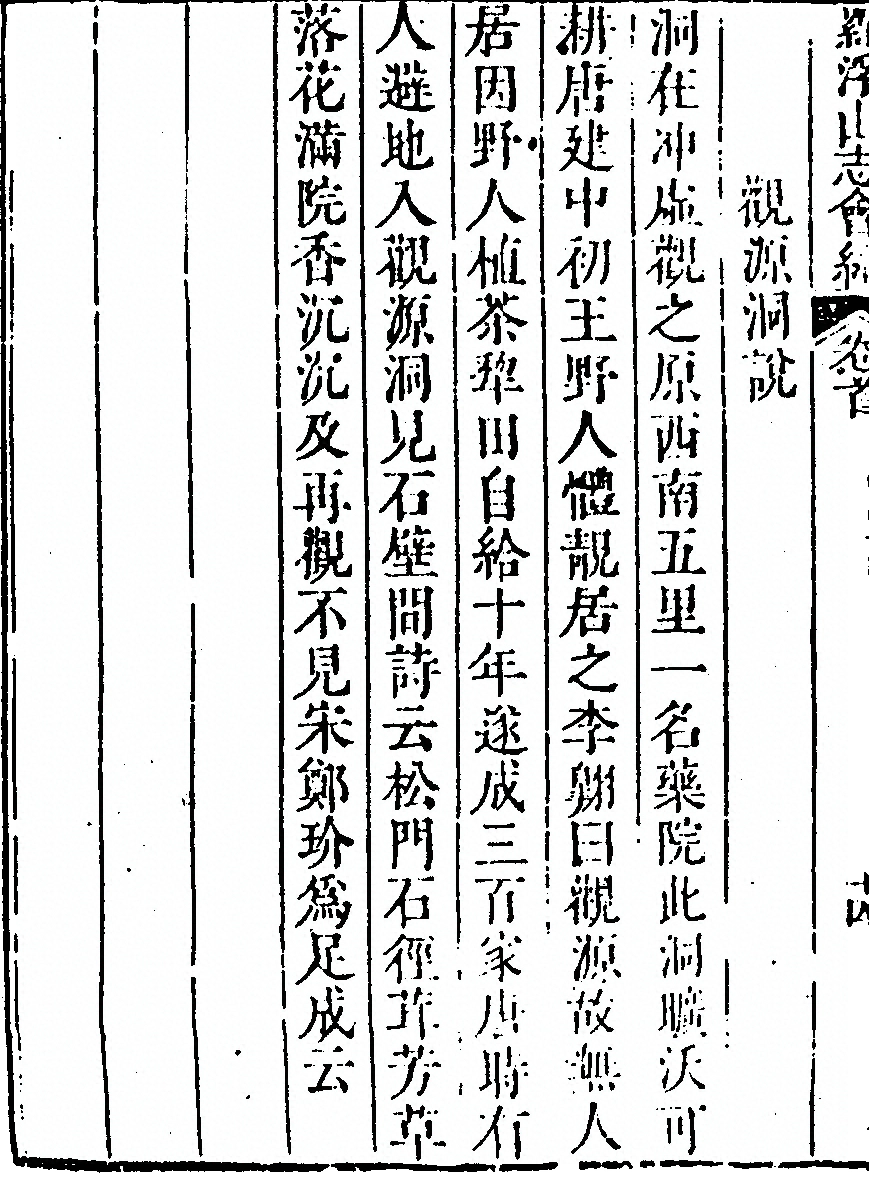 羅浮山志會編 卷首
觀源洞說
洞在冲虛觀之原西南五里一名藥院此洞曠沃可
耕唐建中初王野人體靚居之李翱曰觀源故無人
居因野人植茶犂田自給十年遂成三百家唐時有
人避地入觀源洞見石壁間詩云松門石徑茸芳草
落花滿院香沉沉及再觀不見宋鄭玠爲足成云